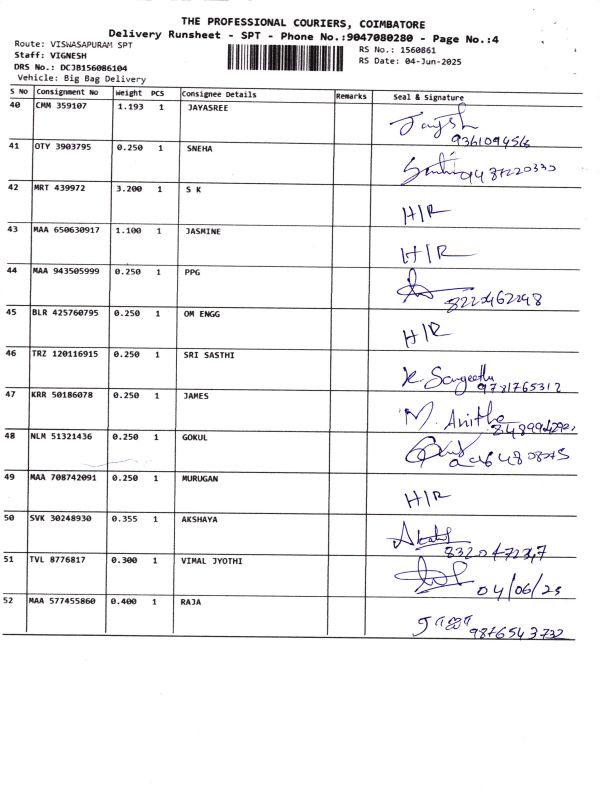 THE PROFESSIONAL COURIERS, COIMBATORE
Delivery Runsheet - SPT - Phone No.:9047080280 - Page No.:4
Route: VISWASAPURAM SPT
Staff: VIGNESH
DRS No.: DCJB156086104
Vehicle: Big Bag Delivery
RS No.: 1560861
RS Date: 04-Jun-2025
S No Consignment No Weight PCS Consignee Details Remarks Seal & Signature
40 CMM 359107 1.193 1 JAYASREE
41 OTY 3903795 0.250 1 SNEHA
42 MRT 439972 3.200 1 S K H/R
43 MAA 650630917 1.100 1 JASMINE H/R
44 MAA 943505999 0.250 1 PPG
45 BLR 425760795 0.250 1 OM ENGG H/R
46 TRZ 120116915 0.250 1 SRI SASTHI K Sangeetha 9781765312
47 KRR 50186078 0.250 1 JAMES M. Anitha
48 NLM 51321436 0.250 1 GOKUL
49 MAA 708742091 0.250 1 MURUGAN H/R
50 SVK 30248930 0.355 1 AKSHAYA
51 TVL 8776817 0.300 1 VIMAL JYOTHI 04/06/25
52 MAA 577455860 0.400 1 RAJA 9876543732